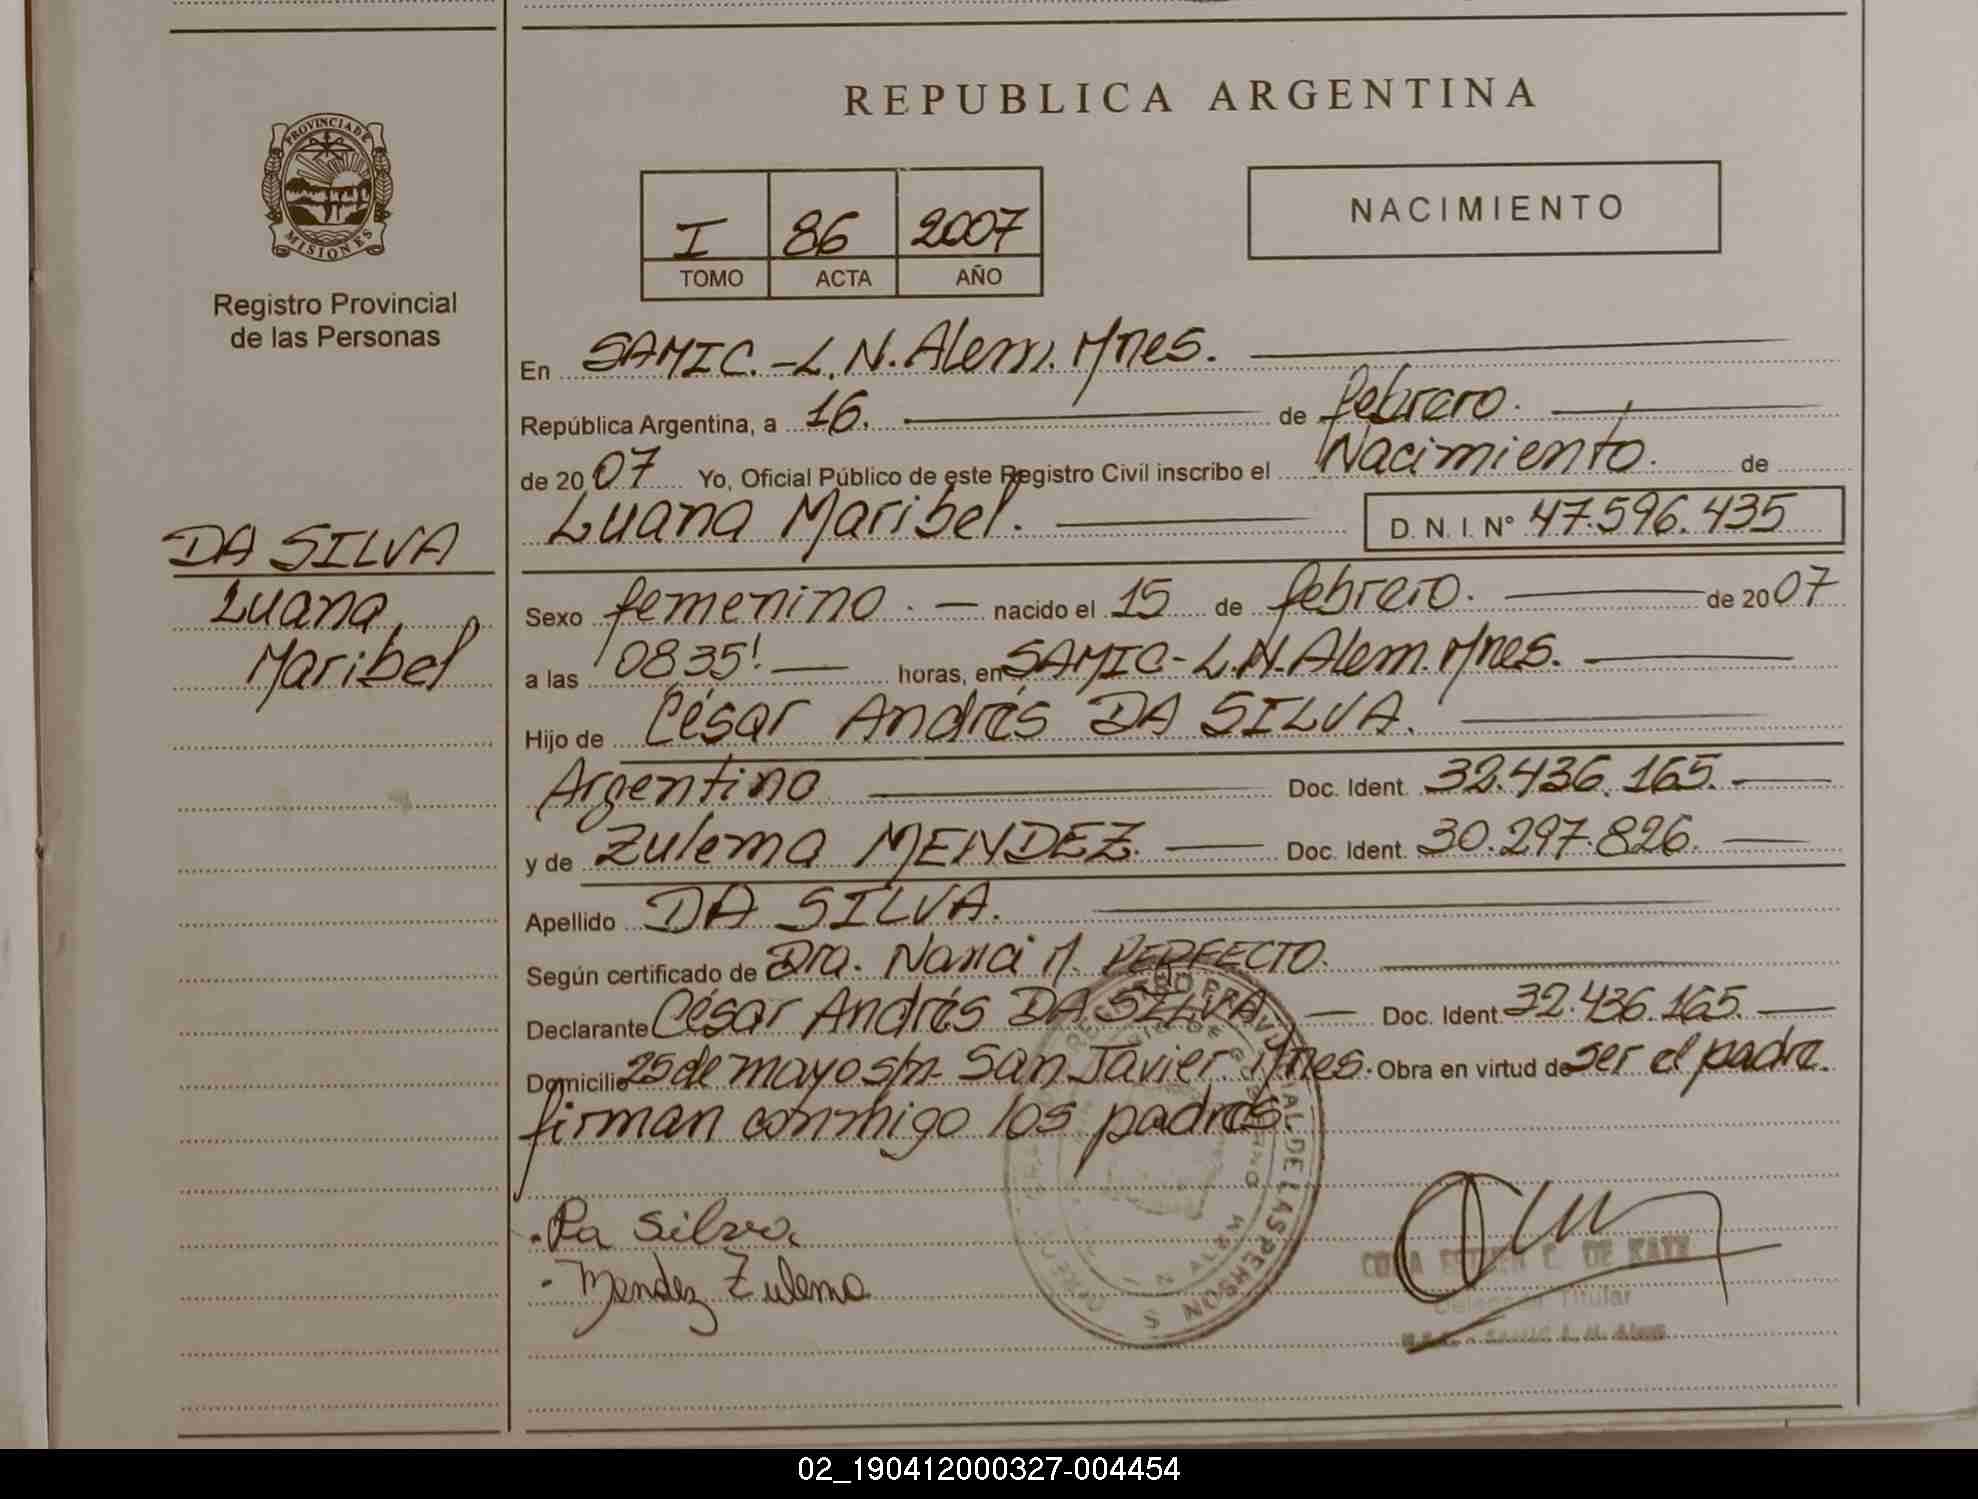 REPUBLICA ARGENTINA
PROVINCIA DE MISIONES
Registro Provincial
de las Personas
I 86 2007
TOMO ACTA AÑO
NACIMIENTO
En SAMIC.-L.N.Alem. Mnes.
República Argentina, a 16. de febrero.
de 2007 Yo, Oficial Público de este Registro Civil inscribo el Nacimiento. de
Luana Maribel. D. N. I. N° 47.596.435
DA SILVA
Luana
Maribel
Sexo femenino. nacido el 15 de febrero. de 2007
a las 0835'. horas, en SAMIC-L.N.Alem. Mnes.
Hijo de César Andrés DA SILVA.
Argentino Doc. Ident. 32.436.165.
y de Zulema MENDEZ. Doc. Ident. 30.297.826.
Apellido DA SILVA.
Según certificado de Dra. Nanci M. PERFECTO.
Declarante César Andrés DA SILVA Doc. Ident. 32.436.165.
Domicilio 25 de mayo s/n. San Javier. Mnes. Obra en virtud de ser el padre.
firman conmigo los padres.
Da Silva
Mendez Zulema
DE KATZ
Titular
02_190412000327-004454